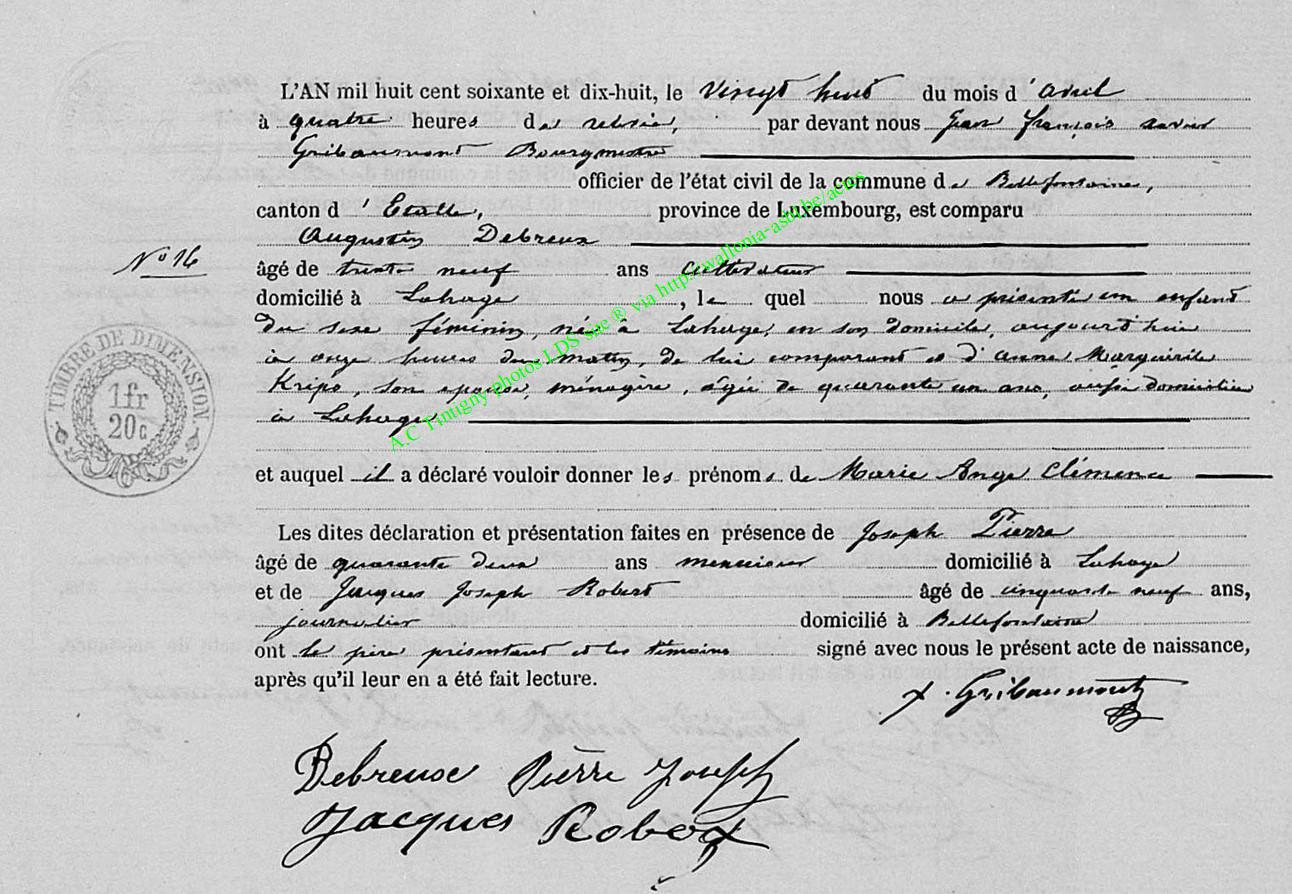 L'AN mil huit cent soixante et dix-huit, le vingt huit du mois d'avril
à quatre heures de relevée, par devant nous Jean François Xavier
Gribaumont Bourgmestre
officier de l'état civil de la commune de Bellefontaine,
canton d'Etalle, province de Luxembourg, est comparu
Augustin Debreux
N° 16
âgé de trente neuf ans cultivateur
domicilié à Lahage, le quel nous a présenté un enfant
du sexe féminin, née à Lahage, en son domicile, aujourd'hui
à onze heures du matin, de lui comparant et d'anne Marguerite
son épouse, ménagère, âgée de quarante un ans, aussi domiciliée
à Lahage
et auquel il a déclaré vouloir donner les prénoms de Marie Ange Clémence
Les dites déclaration et présentation faites en présence de Joseph Pierre
âgé de quarante deux ans domicilié à Lahage
et de Jacques Joseph Robert âgé de cinquante neuf ans,
journalier domicilié à Bellefontaine
ont le père présentant et les témoins signé avec nous le présent acte de naissance,
après qu'il leur en a été fait lecture.
x. Gribaumont
Debreux Pierre Joseph
Jacques Robert
TIMBRE DE DIMENSION
1 fr
20 c
A.C Tintigny-photos LDS site ® via http://wallonia-asbl.be/actes